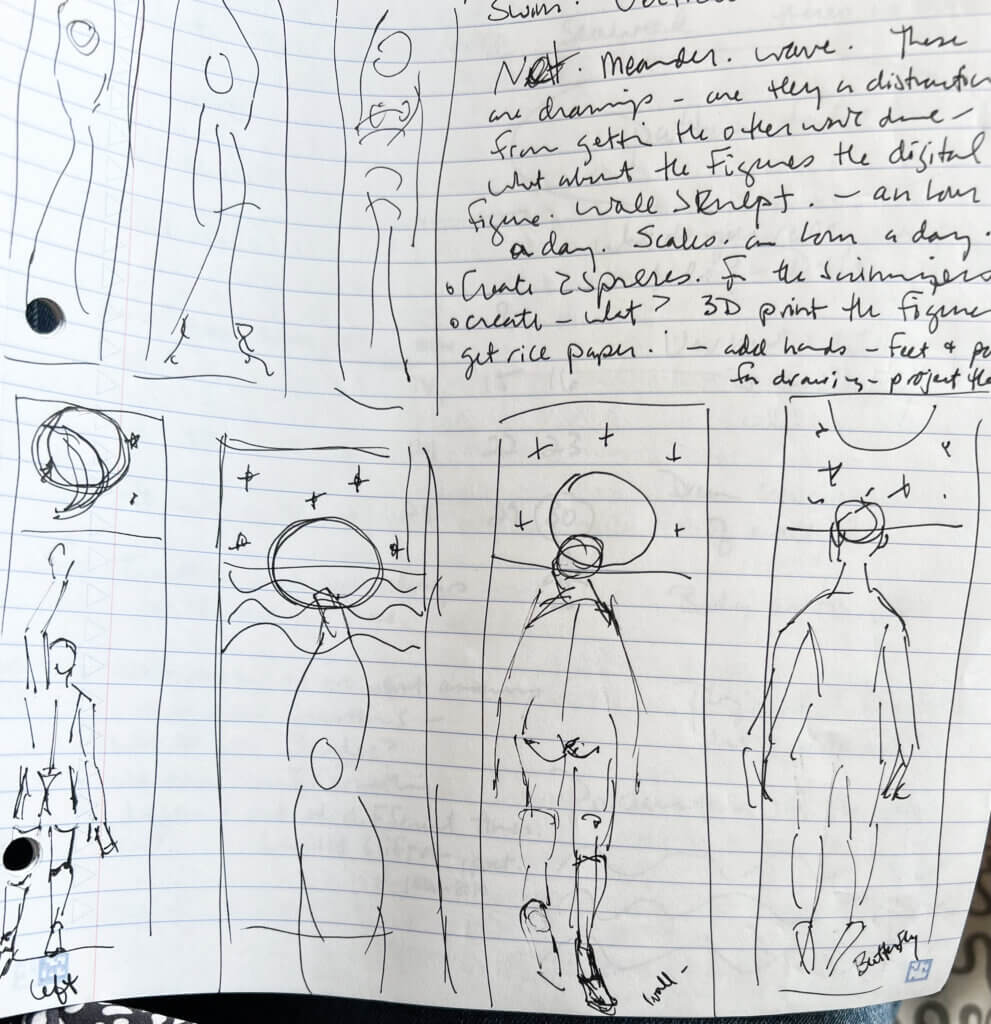 Swim.
Not. Meander. wave. These
are drawings – are they a distraction
from getti the other work done –
what about the Figures the digital
figure. Wall Sculpt. – an hour
a day. Scales. an hour a day.
• Create 2 Spheres. For the Swimmizers
• create – what? 3D print the Figure
get rice paper. – add hands – Feet &
for drawing – project the
Left
Wall –
Butterfly